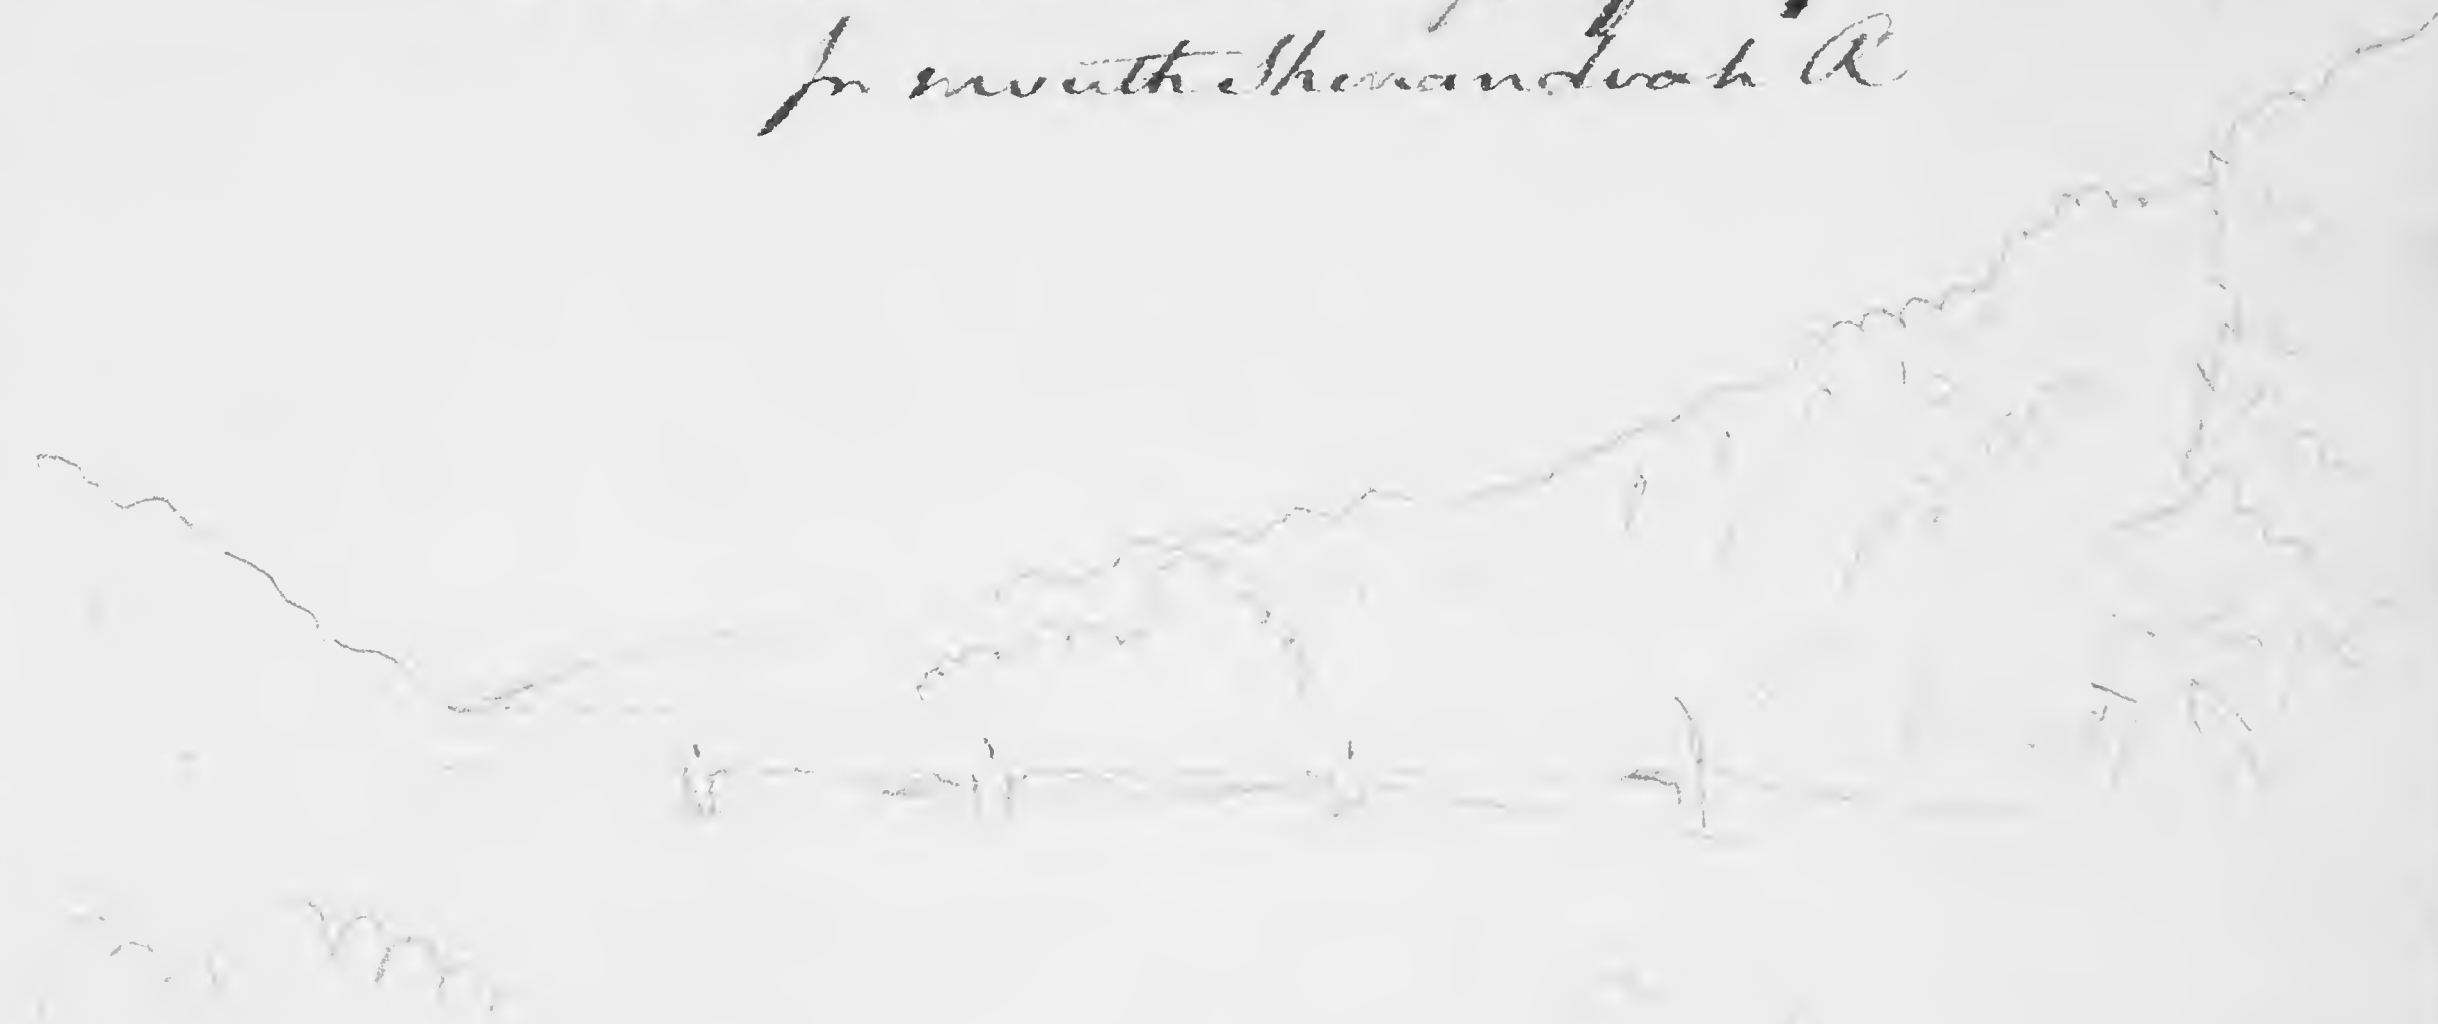 fr mouth Shenandoah R